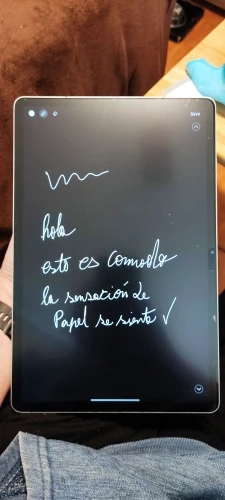 Save
hola
esto es comodo
la sensación de
Papel se siente ✓